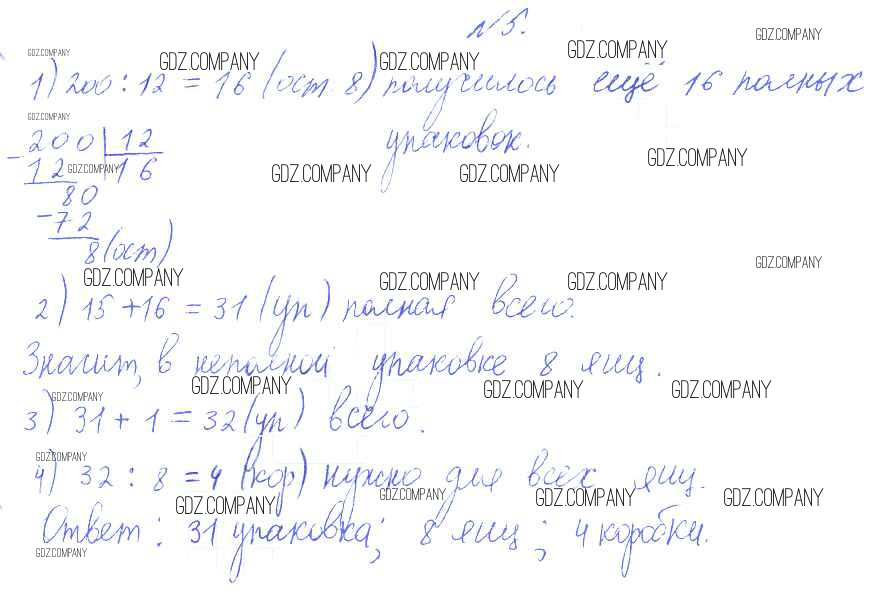 №5.
GDZ.COMPANY GDZ.COMPANY GDZ.COMPANY GDZ.COMPANY GDZ.COMPANY
1) 200 : 12 = 16 (ост. 8) получилось ещё 16 полных
упаковок.
GDZ.COMPANY
- 200 | 12
12 | 16
GDZ.COMPANY GDZ.COMPANY GDZ.COMPANY GDZ.COMPANY
80
- 72
8 (ост)
GDZ.COMPANY GDZ.COMPANY GDZ.COMPANY GDZ.COMPANY
2) 15 + 16 = 31 (уп) полная всего.
Значит, в неполной упаковке 8 яиц.
GDZ.COMPANY GDZ.COMPANY GDZ.COMPANY GDZ.COMPANY
3) 31 + 1 = 32 (уп) всего.
GDZ.COMPANY
4) 32 : 8 = 4 (кор) нужно для всех яиц.
GDZ.COMPANY GDZ.COMPANY GDZ.COMPANY GDZ.COMPANY
Ответ: 31 упаковка; 8 яиц; 4 коробки.
GDZ.COMPANY